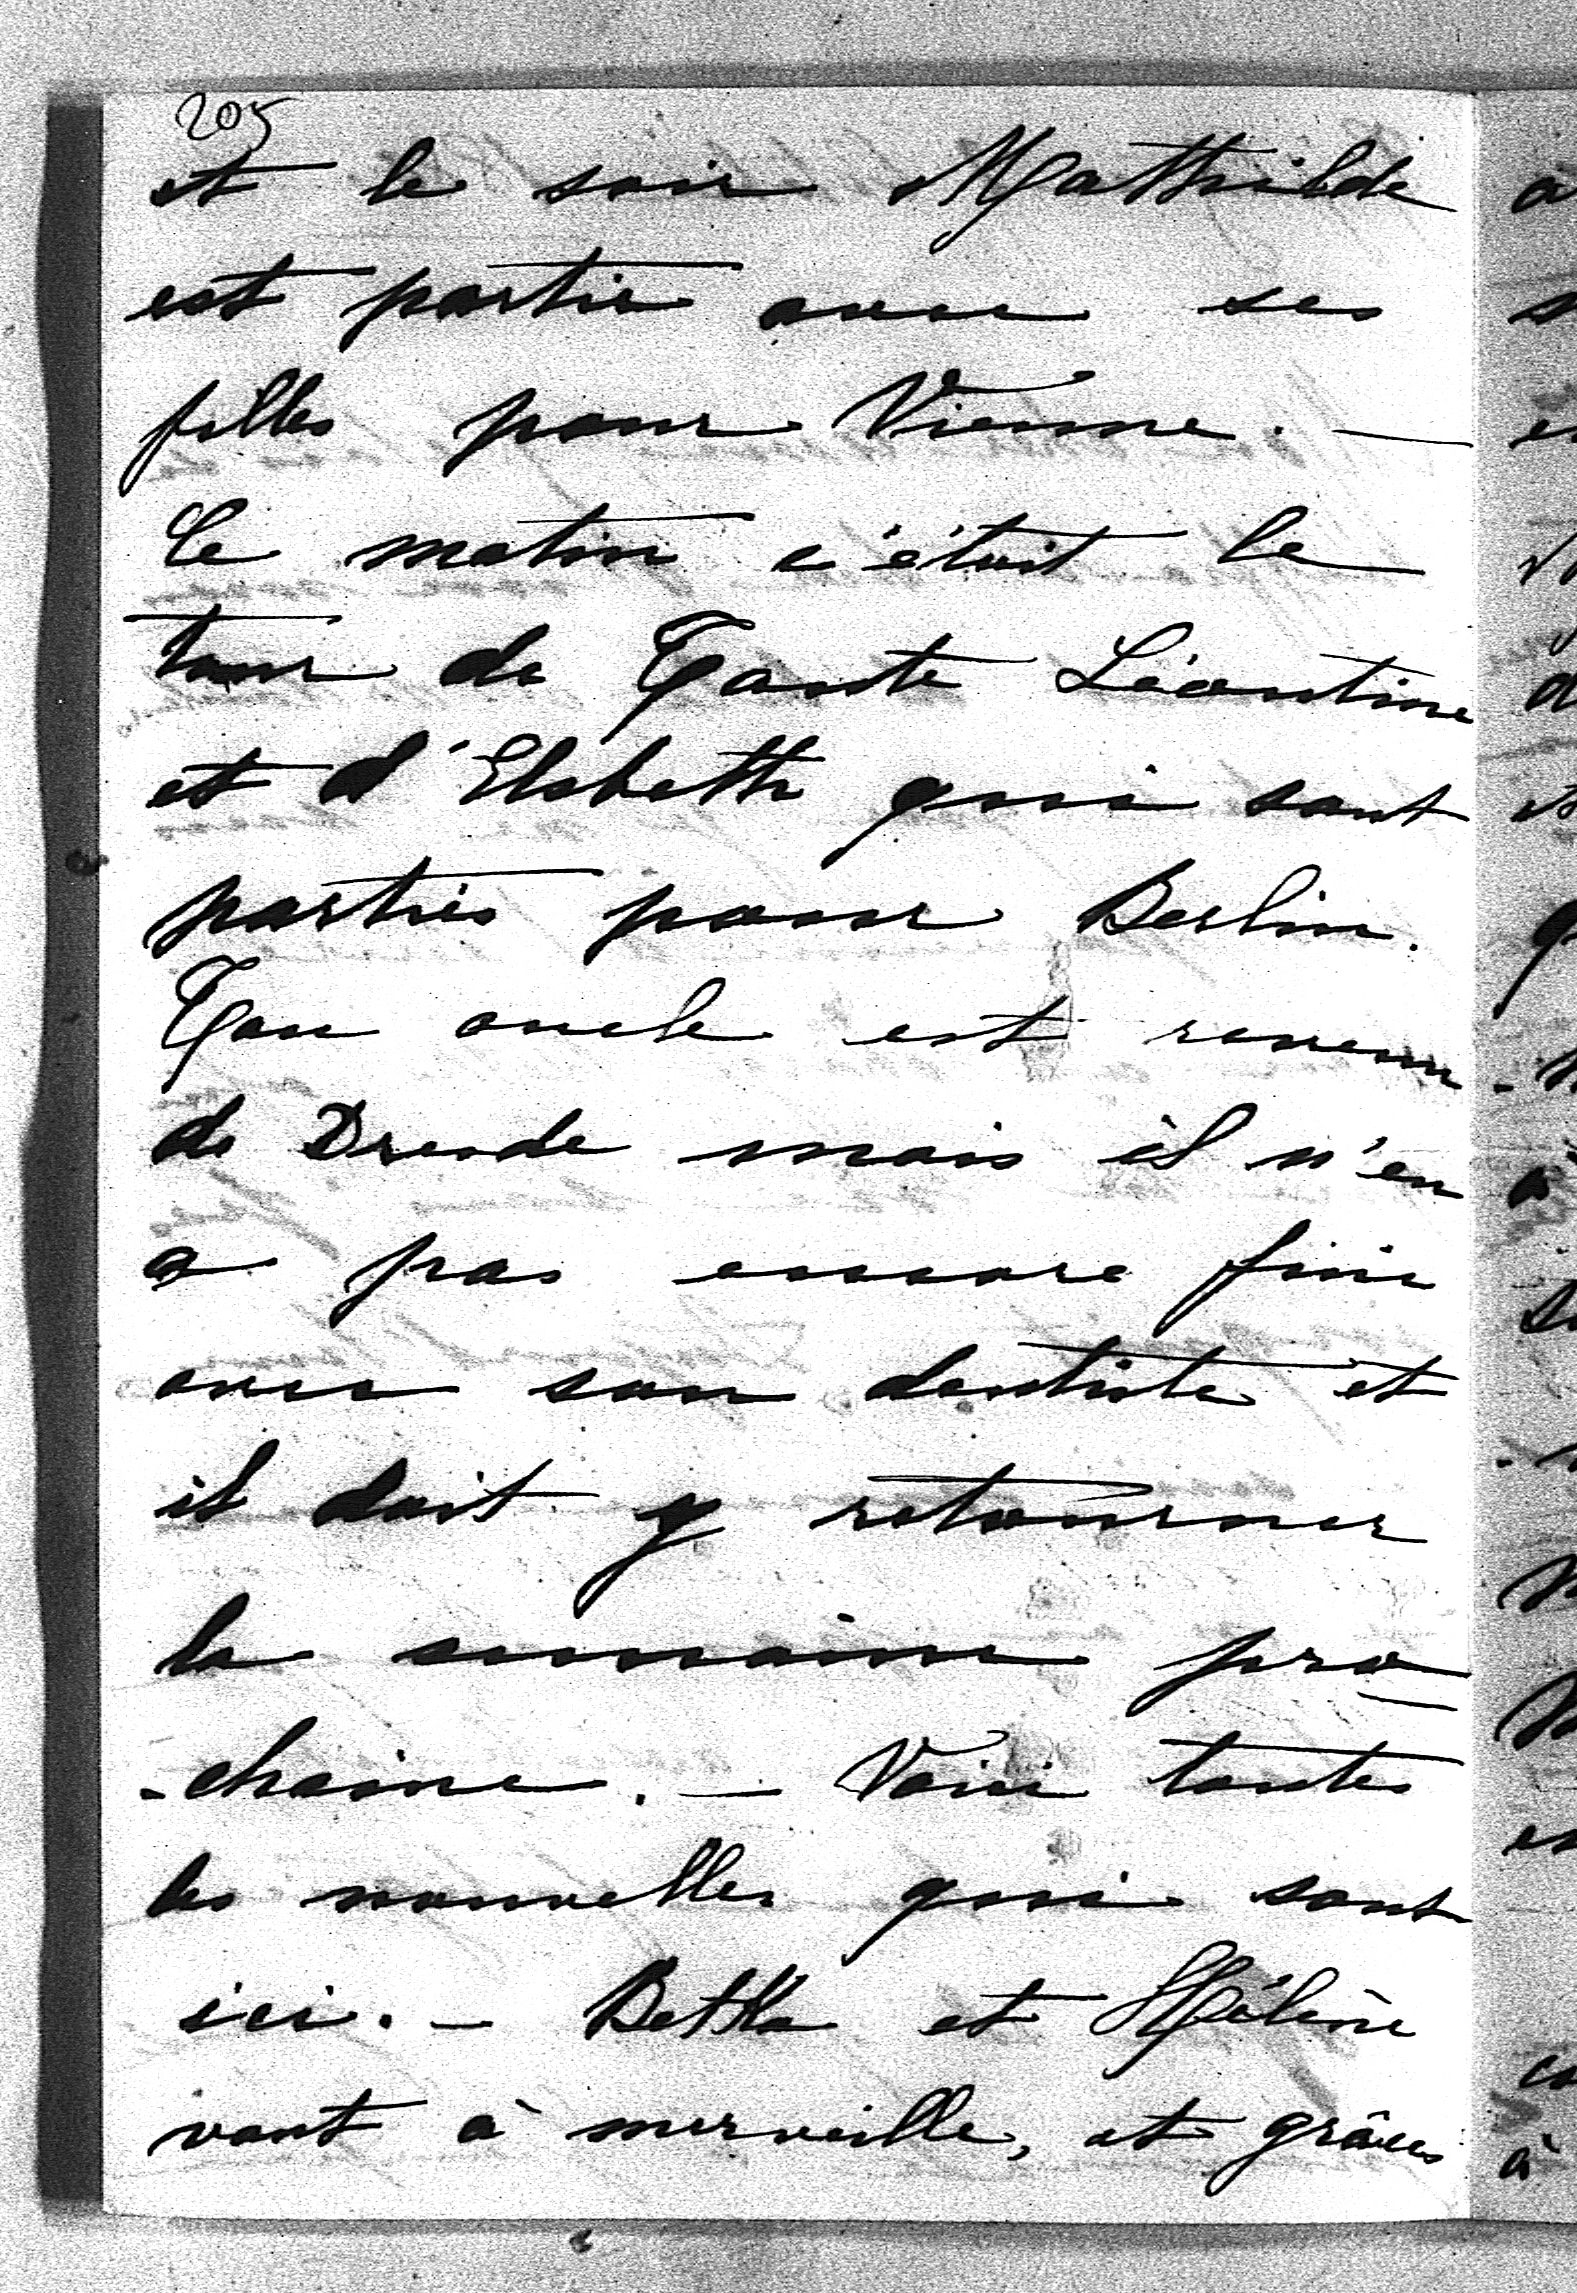 205
et le soir Mathilde
est partie avec ses
filles pour Vienne. —
Le matin c'était le
tour de Tante Léontine
et d'Elsbeth qui sont
parties pour Berlin.
Ton oncle est revenu
de Dresde mais il n'en
a pas encore fini
avec son dentiste et
il doit y retourner
la semaine pro
-chaine. — Voici toutes
les nouvelles qui sont
ici. — Betka et Hélène
vont à merveille, et grâces